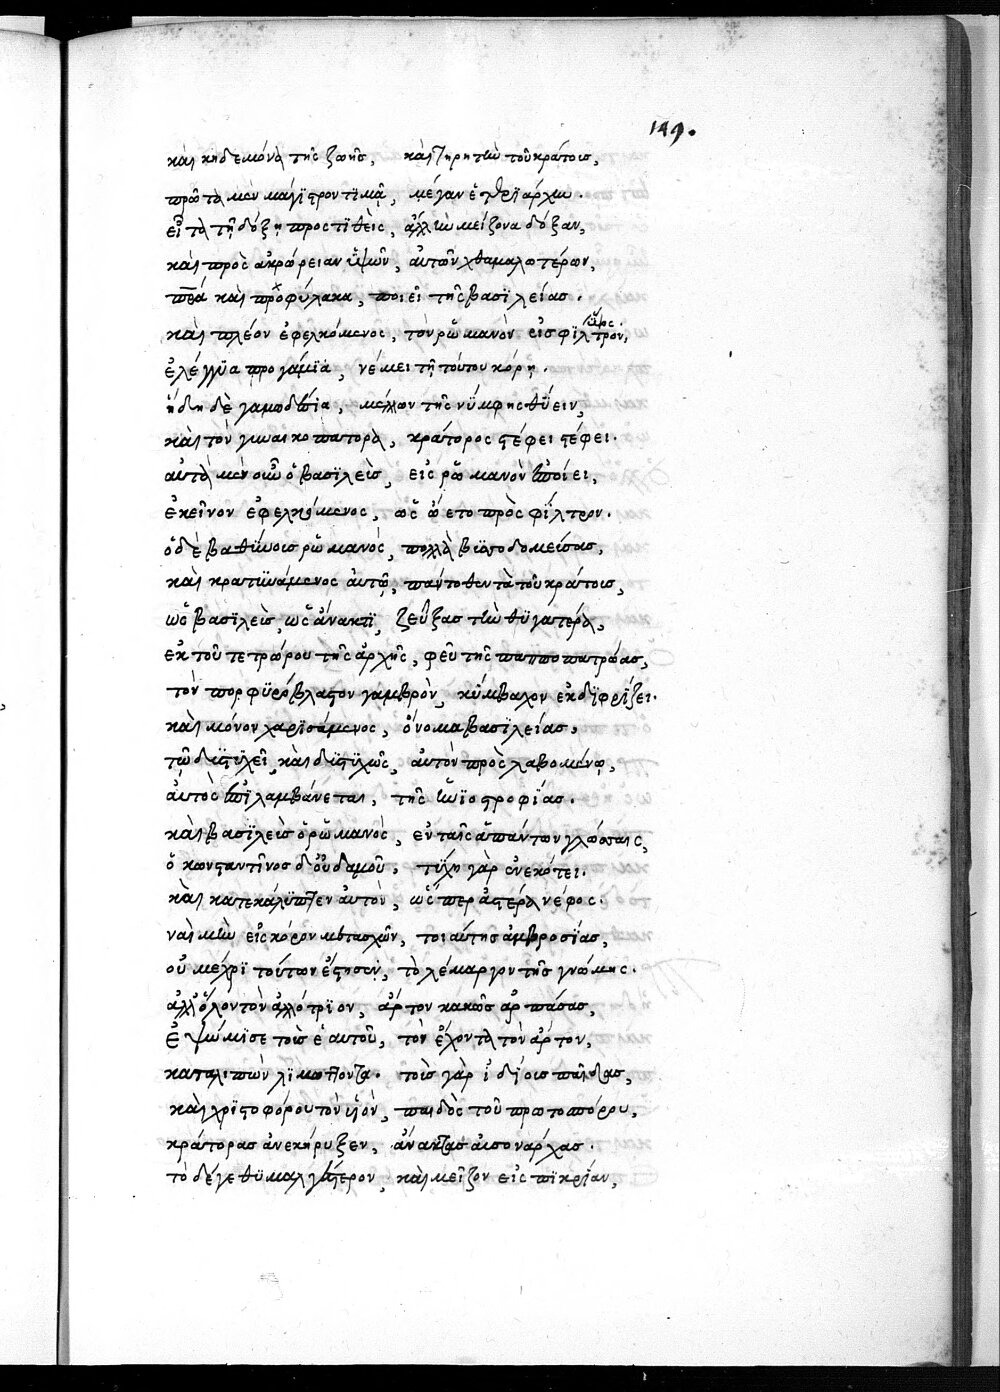 149.
καὶ κηδεμόνα τῆς ζωῆς, καὶ τηρητὴν τοῦ κράτους,
πρῶτα μὲν μάγιστρον τιμᾷ, μέγαν ἑταιριάρχην.
εἶτα τῇ δόξῃ προστιθεὶς, ἄλλην μείζονα δόξαν,
καὶ πρὸς ἀκρώρειαν ὑψῶν, αὐτῶν χθαμαλωτέρων,
πρα καὶ προφύλακα, ποιεῖ τῆς βασϊλείας.
καὶ πλέον ἐφελκόμενος, τὸν ῥωμανὸν εἰς φίλτρον,
ἐλέγγϋα προγάμϊα, νέμει τῇ τούτου κόρῃ.
ἤδη δὲ γαμοδαίσια, μέλλων τῆς νύμφης θύειν,
καὶ τὸν γυναικοπάτορα, κράτορος στέφει στέφει.
αὐτὰ μὲν οὖν ὁ βασϊλεὺς, εἰς ῥωμανὸν ἐποίει,
ἐκεῖνον ἐφελκόμενος, ὡς ᾤετο πρὸς φίλτρον.
ὁ δὲ βαθύνους ῥωμανός, πολλὰ βυσσοδομεύσας,
καὶ κρατυνάμενος αὐτῷ, παντόθεν τὰ τοῦ κράτους,
ὡς βασϊλεὺς, ὡς ἄνακτϊ, ζεύξας τὴν θυγατέρα,
ἐκ τοῦ τετρώρου τῆς ἀρχῆς, φεῦ τῆς παπποπατρῴας,
τὸν πορφϋρόβλαστον γαμβρὸν, κύμβαχον ἐκδϊφρίζει.
καὶ μόνον χαρϊσάμενος, ὄνομα βασϊλείας,
τῷ δυστυχεῖ καὶ δυστυχῶς, αὐτὸν προσλαβομένῳ,
αὐτὸς ἐπϊλαμβάνεται, τῆς ἡνϊοστροφίας.
καὶ βασϊλεὺς ὁ ῥωμανὸς, ἐν ταῖς ἁπάντων γλώσσαις,
ὁ κωνσταντῖνος δ' οὐδαμοῦ, τύχη γὰρ ἀνεκόπτει.
καὶ κατεκάλυπτεν αὐτὸν, ὥσπερ ἀστέρα νέφος.
ναὶ μὴν εἰς κόρον μετασχὼν, τοιαύτης ἀμβροσίας,
οὐ μέχρϊ τούτων ἔστησεν, τὸ λέμαργον τῆς γνώμης.
ἀλλ' ὅλον τὸν ἀλλότρϊον, ἄρτον κακῶς ἁρπάσας,
ἐψώμϊσε τοὺς ἑαυτοῦ, τὸν ἔχοντα τὸν ἄρτον,
καταλιπὼν λϊμώττοντα. τοὺς γὰρ ἰδίους παῖδας,
καὶ χρϊστοφόρου τὸν υἱὸν, παιδὸς τοῦ πρωτοπόρου,
κράτορας ἀνεκήρυξεν, ἄνακτας αὐσονάρχας.
τὸ δέ γε θϋμαλγέστερον, καὶ μεῖζον εἰς πϊκρίαν,